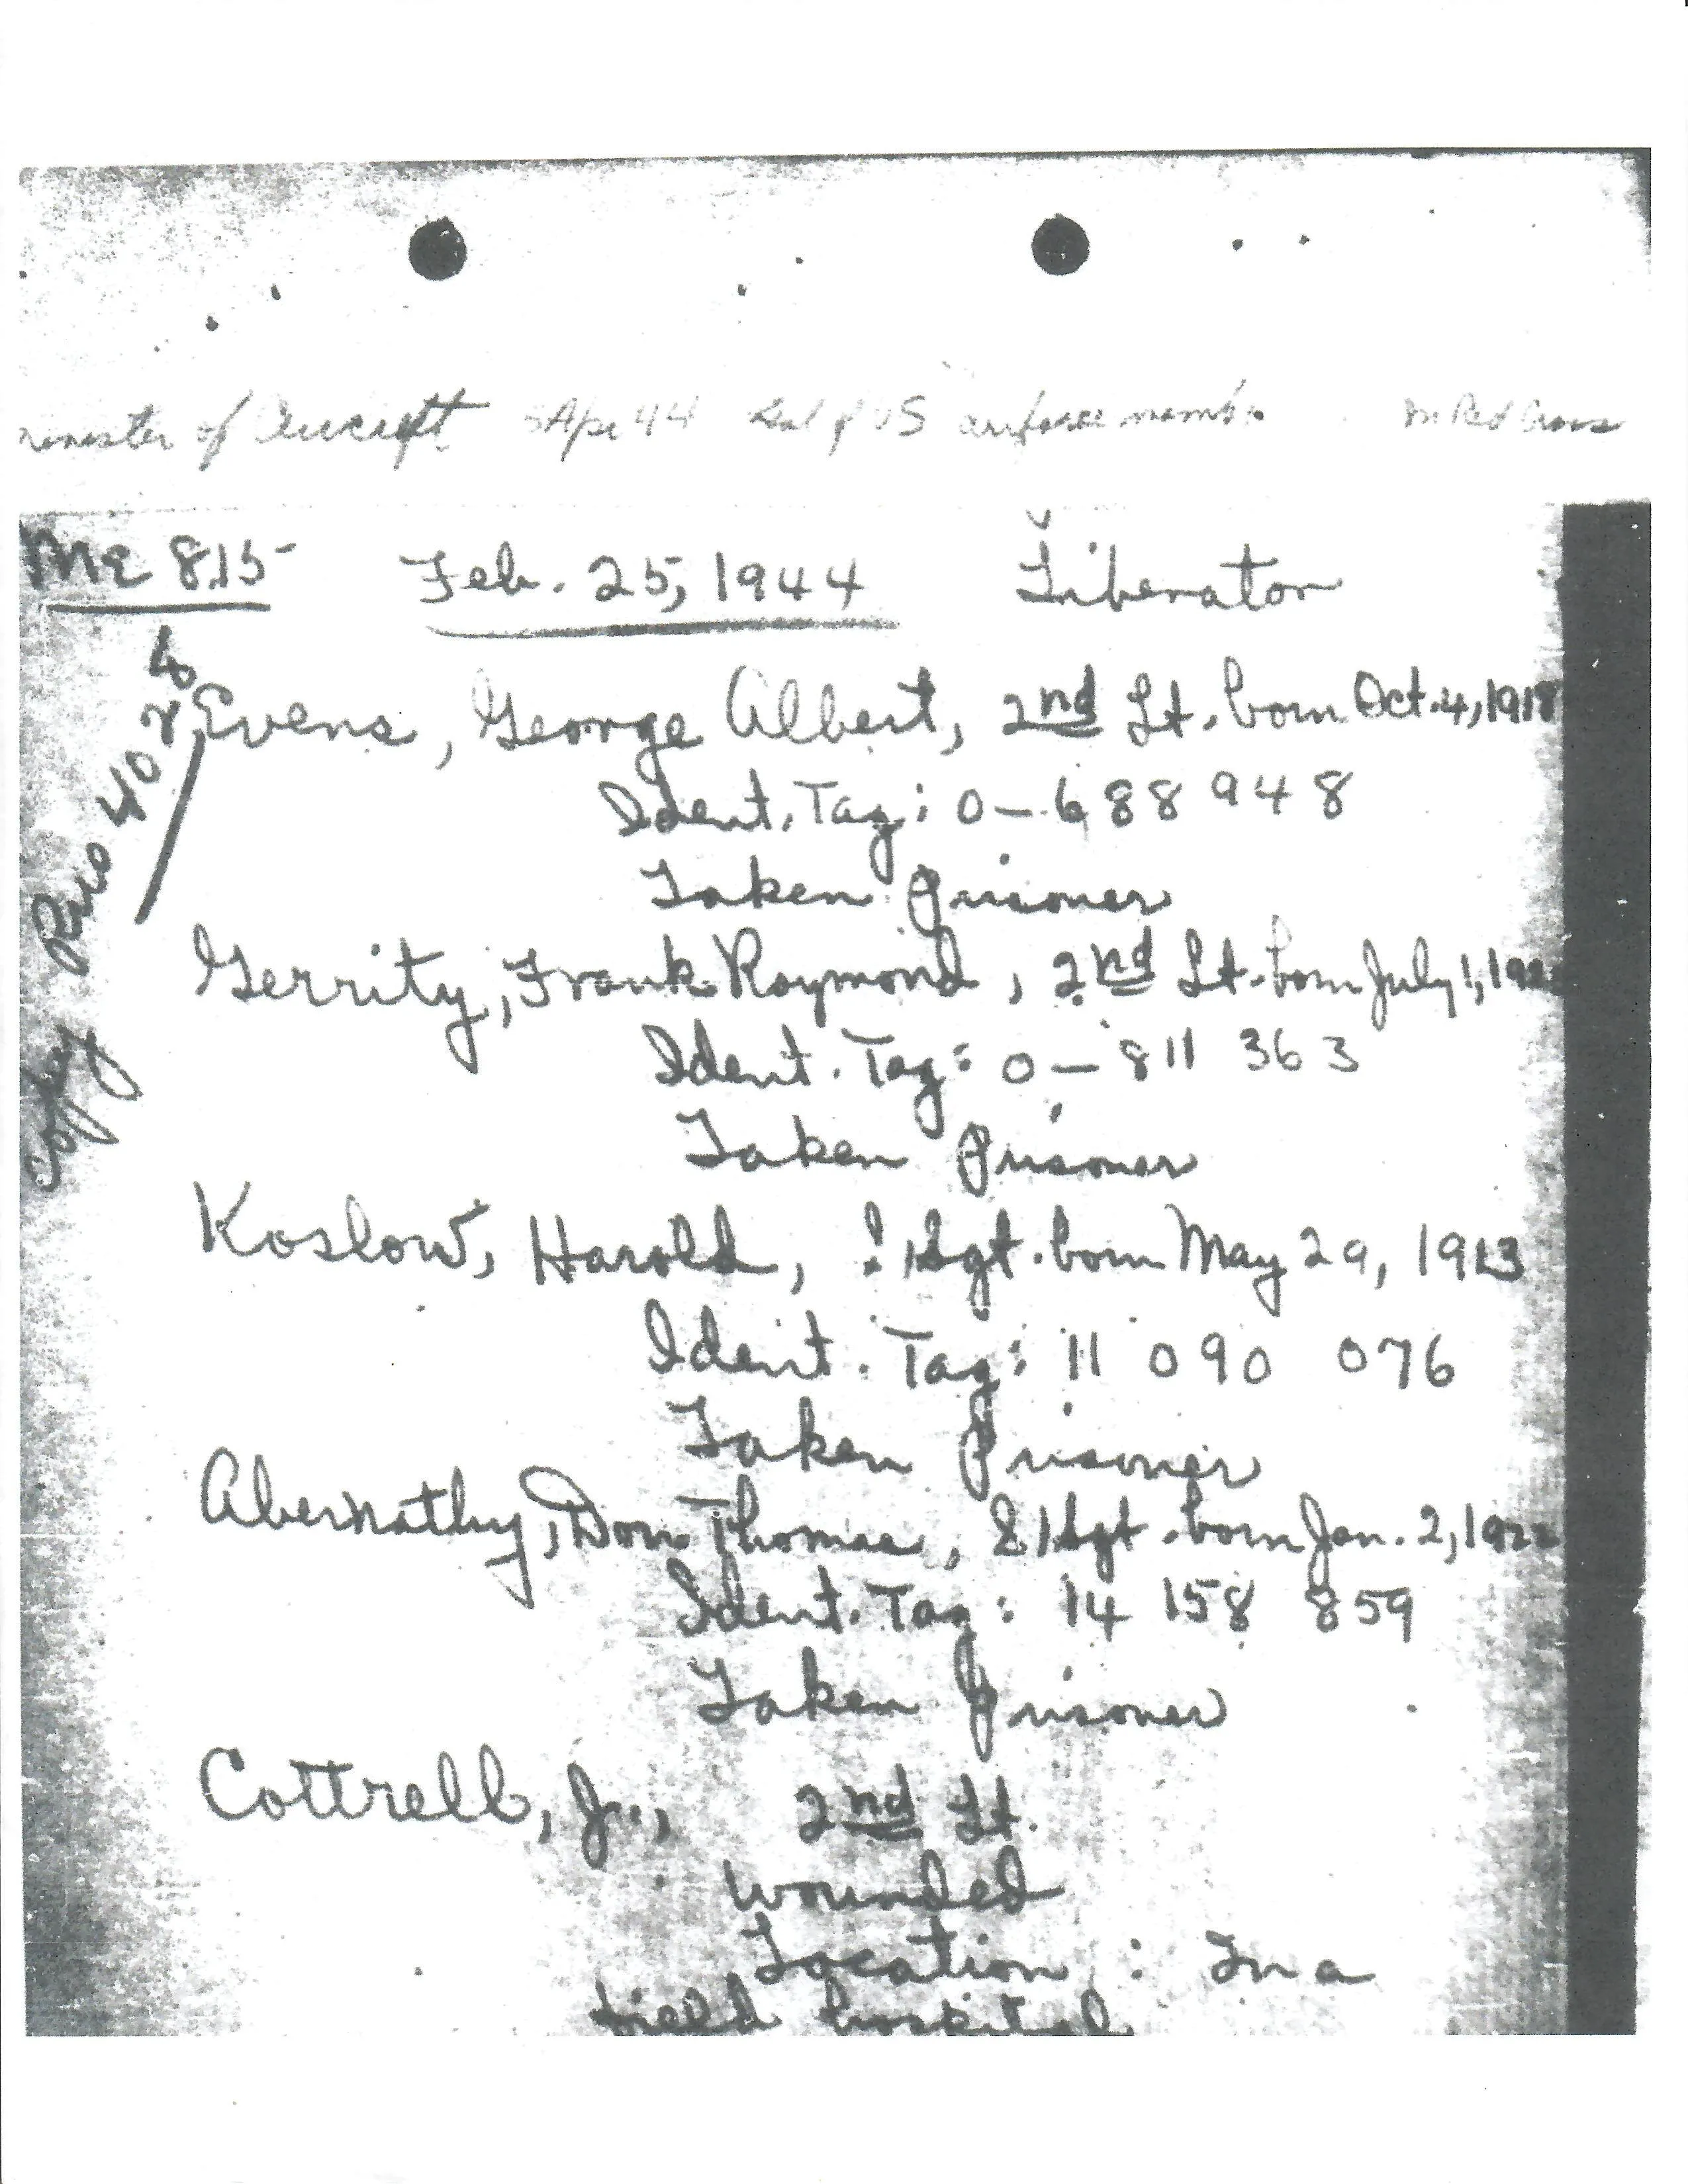 of Aircraft Apr 44 of US airforce Red Cross
ME 815 Feb. 25, 1944 Liberator
Evens, George Albert, 2nd Lt. born Oct. 4, 1918
Ident. Tag: 0-688 948
Taken Prisoner
Gerrity, Frank Raymond, 2nd Lt. born July 1,
Ident. Tag: 0-811 363
Taken Prisoner
Koslow, Harold, Sgt. born May 29, 1913
Ident. Tag: 11 090 076
Taken Prisoner
Abernathy, Don Thomas, Sgt. born Jan. 2,
Ident. Tag: 14 158 859
Taken Prisoner
Cottrell, Jr., 2nd Lt.
wounded
Location: In a
field hospital
Copy